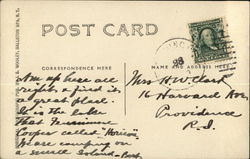 POST CARD
CORRESPONDENCE HERE
NAME AND ADDRESS HERE
Am up here all
right & find it
a great place.
It is the lake
that Fenimore
Cooper called Horicon
We are camping on
a small Island - Bert
Mrs H. W. Clark
16 Harvard Ave
Providence
R.I.